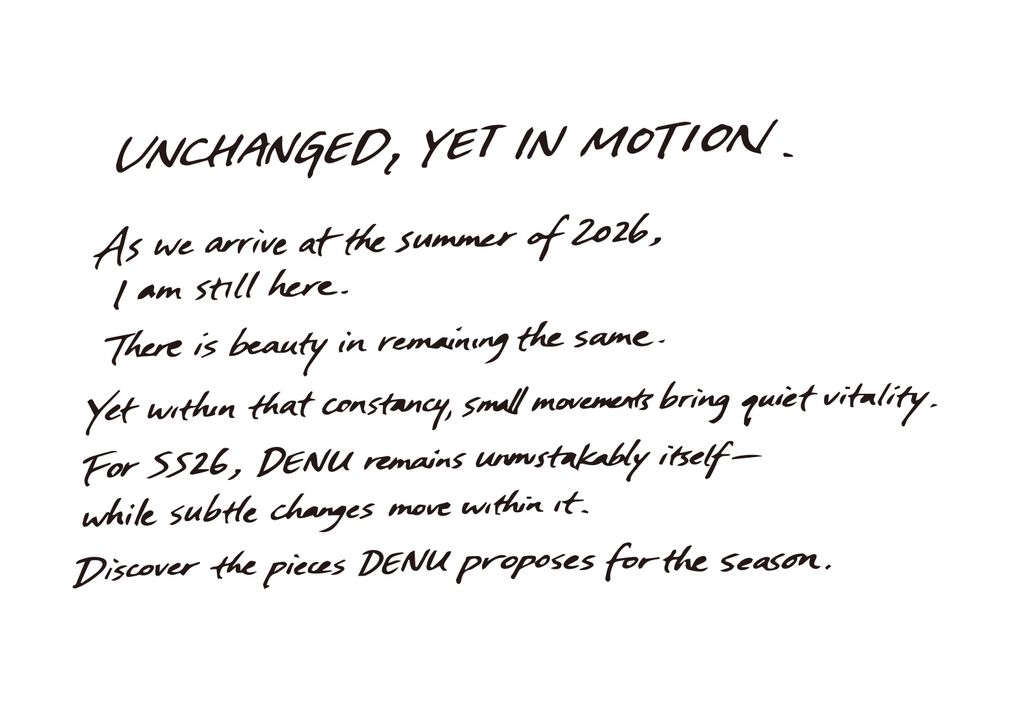 UNCHANGED, YET IN MOTION.
As we arrive at the summer of 2026,
I am still here.
There is beauty in remaining the same.
Yet within that constancy, small movements bring quiet vitality.
For SS26, DENU remains unmistakably itself—
while subtle changes move within it.
Discover the pieces DENU proposes for the season.